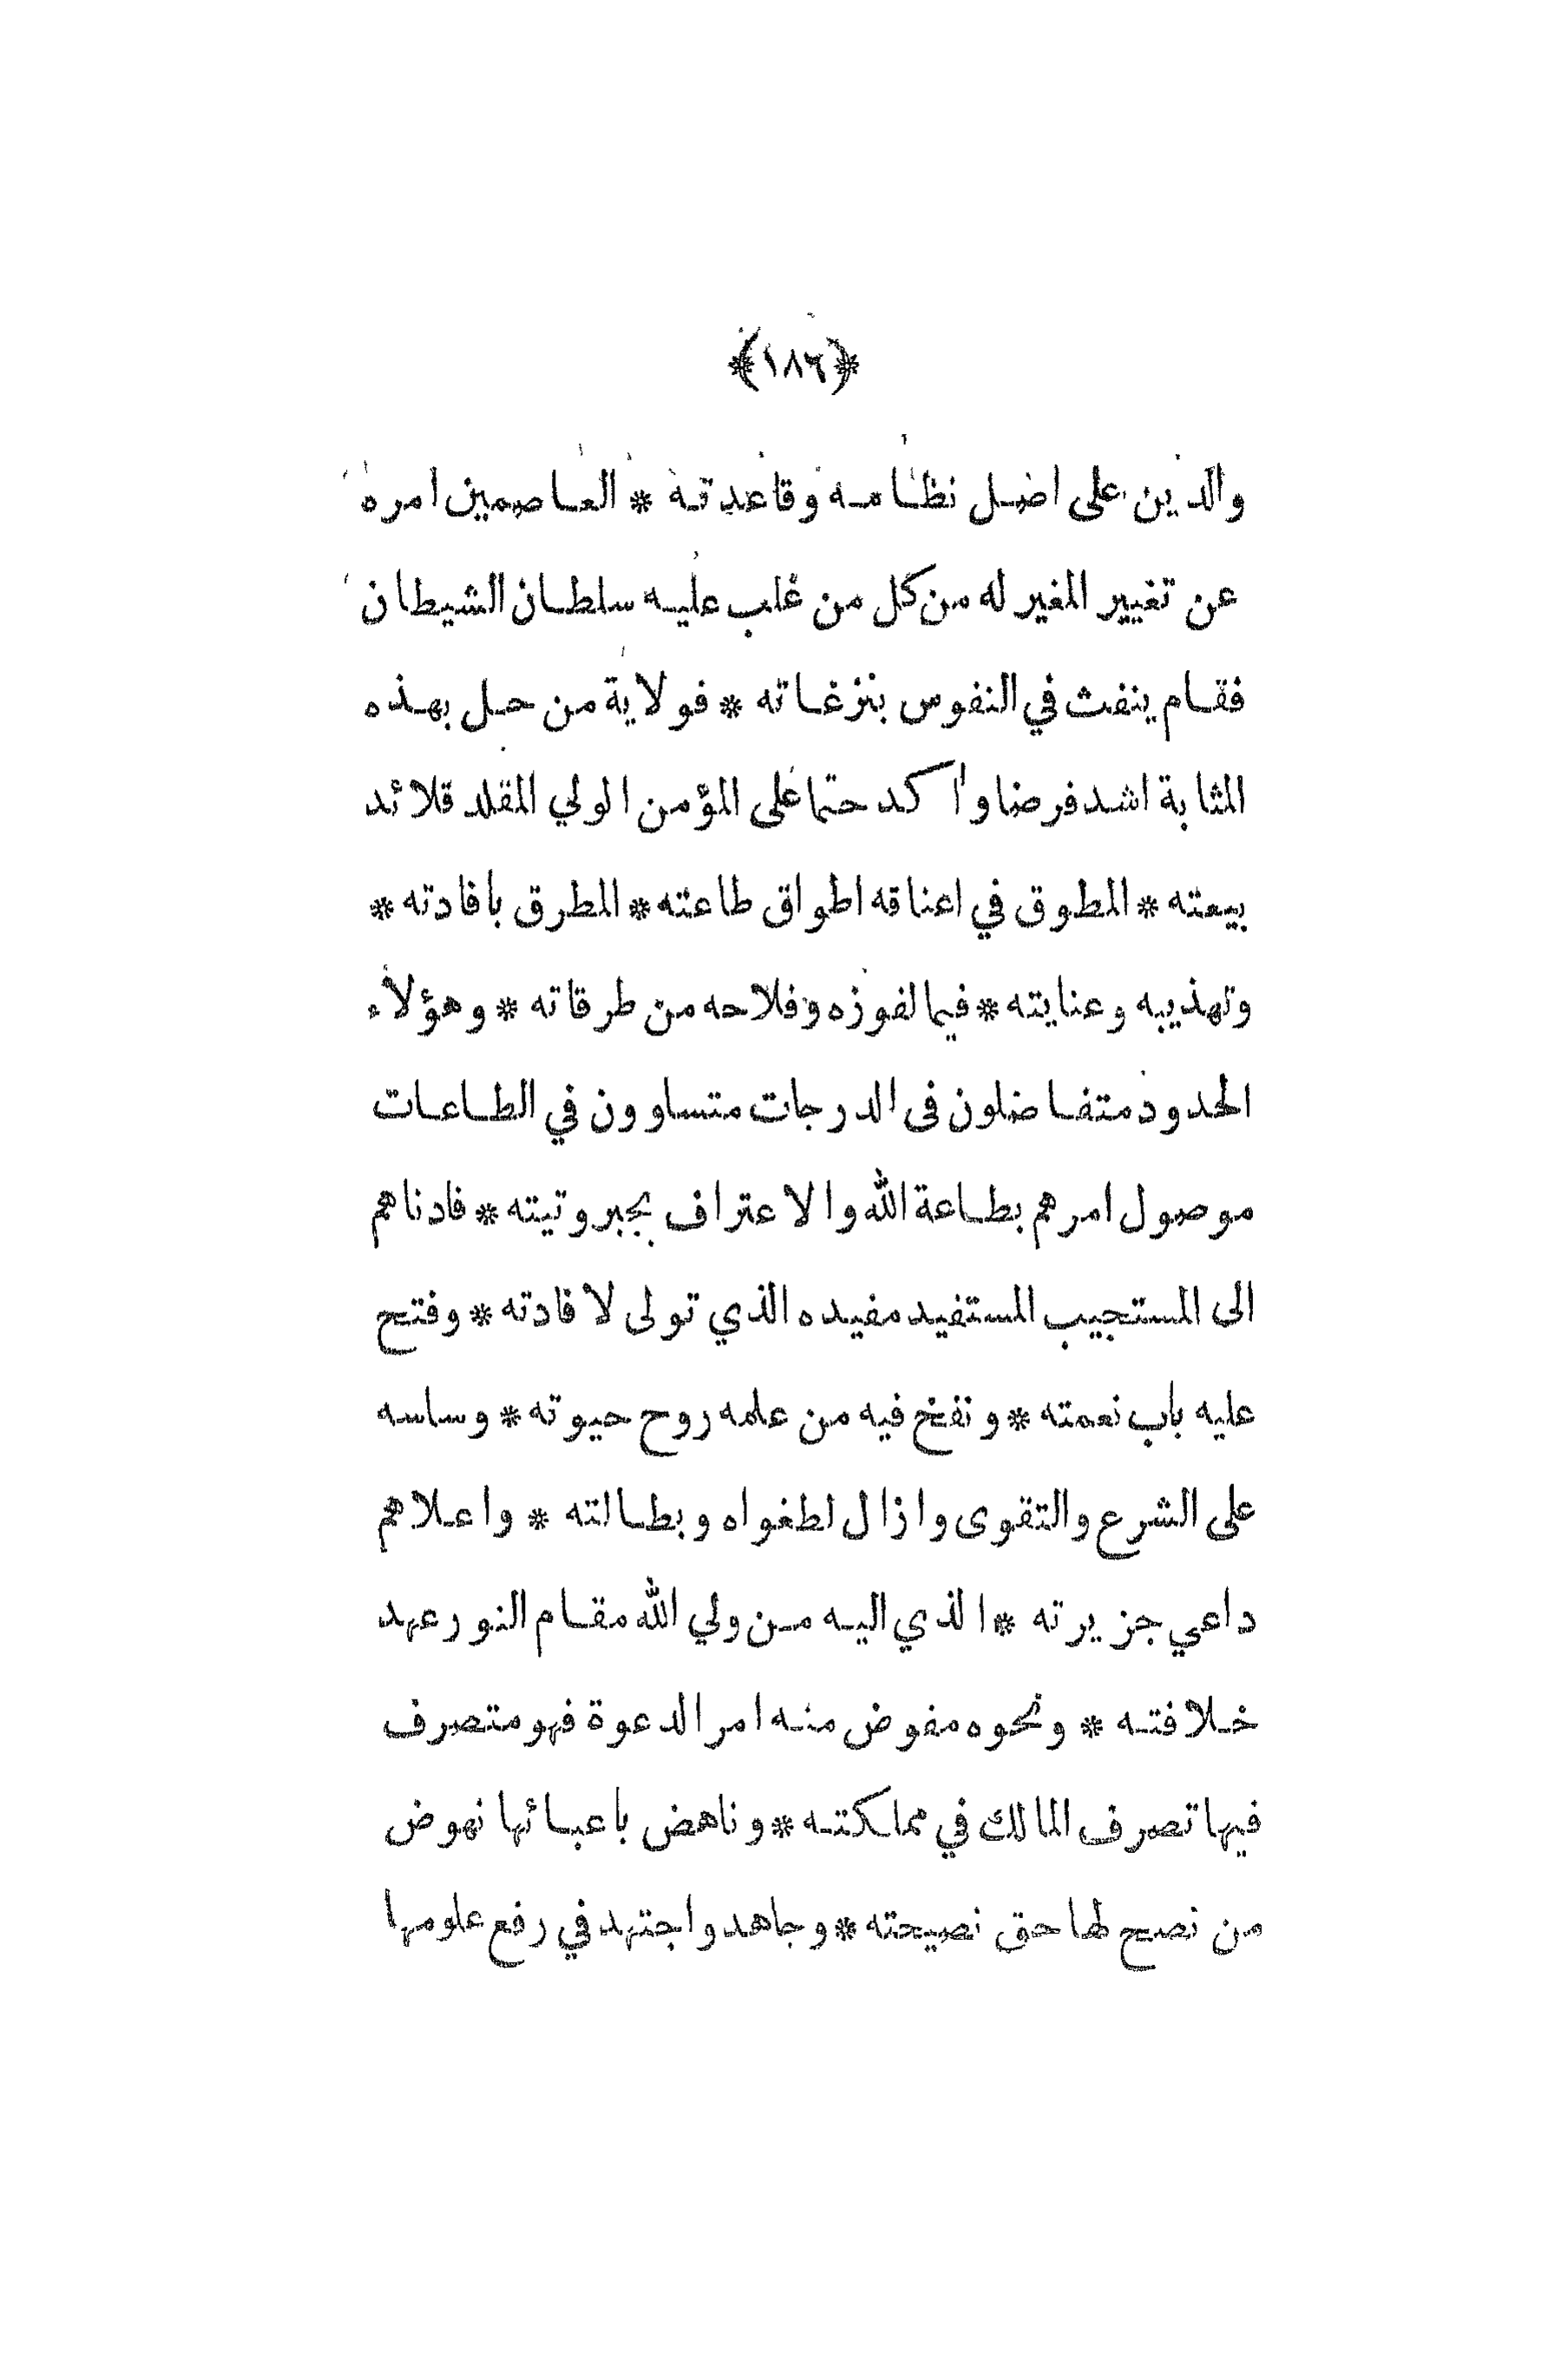 ﴿١٨٦﴾
والدين على اصل نظامه وقاعدته * العاصمين امره
عن تغيير المغير له من كل من غلب عليه سلطان الشيطان
فقام ينفث في النفوس بنزغاته * فولاية من حل بهذه
المثابة اشد فرضا واكد حتما على المؤمن الولي المقلد قلائد
بيعته * المطوق في اعناقه اطواق طاعته * المطرق بافادته *
وتهذيبه وعنايته * فيما لفوزه وفلاحه من طرقاته * وهؤلاء
الحدود متفاضلون فى الدرجات متساوون في الطاعات
موصول امرهم بطاعة الله والاعتراف بجبروتيته * فادناهم
الى المستجيب المستفيد مفيده الذي تولى لافادته * وفتح
عليه باب نعمته * ونفخ فيه من علمه روح حيوته * وساسه
على الشرع والتقوى وازال لطغواه وبطالته * واعلاهم
داعي جزيرته * الذي اليه من ولي الله مقام النور عهد
خلافته * ونحوه مفوض منه امر الدعوة فهو متصرف
فيها تصرف المالك في مملكته * وناهض باعبائها نهوض
من نصح لها حق نصيحته * وجاهد واجتهد في رفع علومها